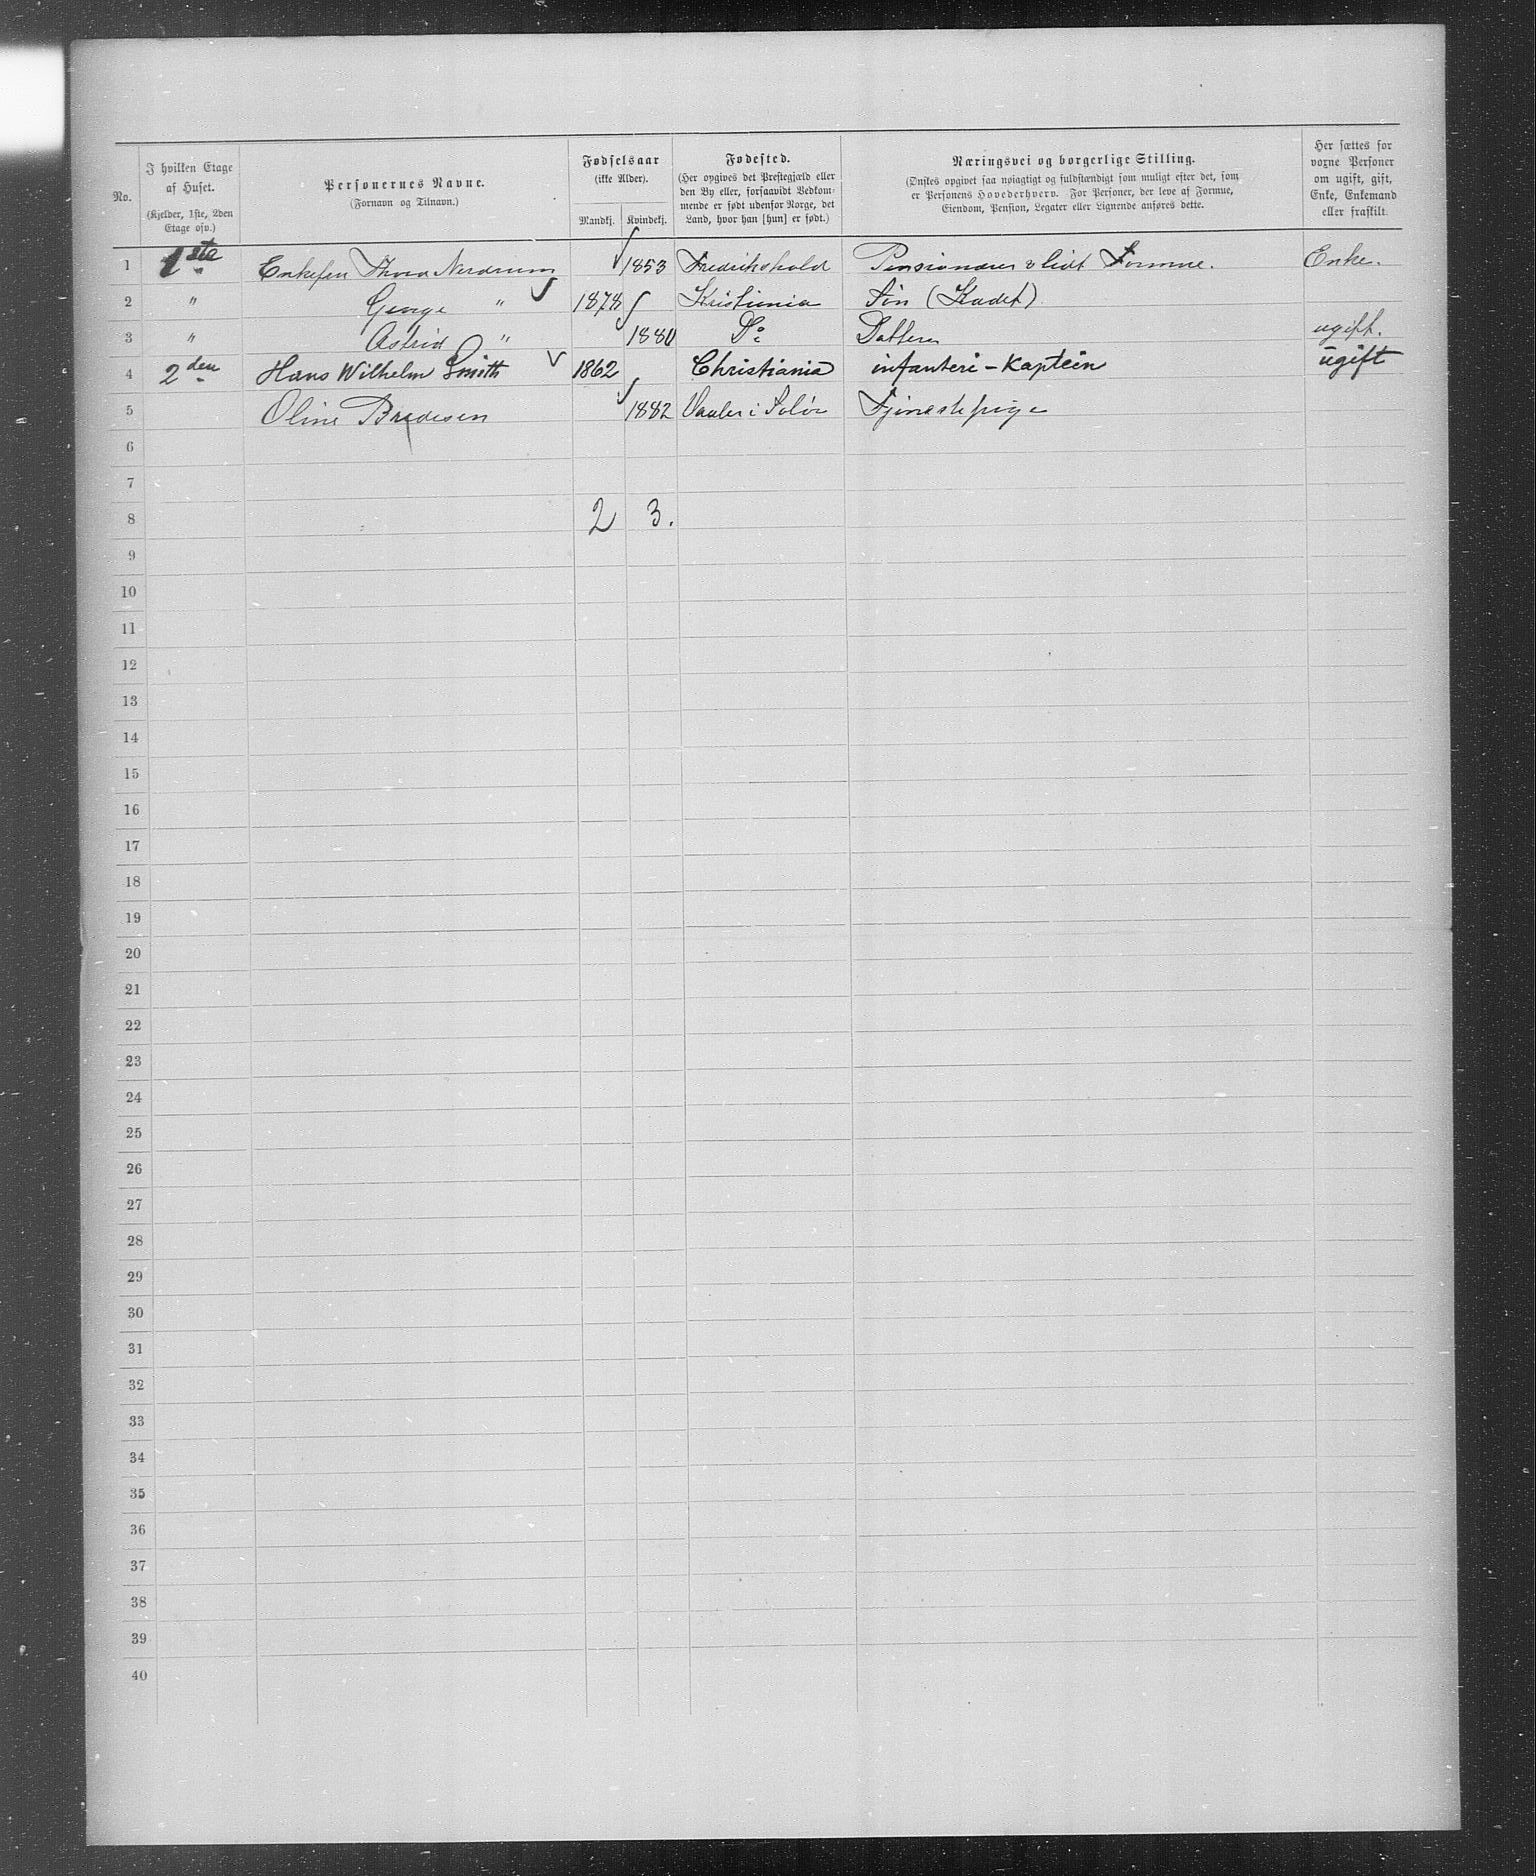 No.
I hvilken Etage af Huset.
(Kjelder, 1ste, 2den Etage osv.)
Personernes Navne.
(Fornavn og Tilnavn.)
Fødselsaar
(ikke Alder).
Mandkj. Kvindekj.
Fødested.
(Her opgives det Prestegjæld eller
den By eller, forsaavidt Vedkom-
mende er født udenfor Norge, det
Land, hvor han [hun] er født.)
Næringsvei og borgerlige Stilling.
(Ønskes opgivet saa nøiagtigt og fuldstændigt som muligt efter det, som
er Personens Hovederhverv. For Personer, der leve af Formue,
Eiendom, Pension, Legater eller Lignende anføres dette.
Her sættes for
voxne Personer
om ugift, gift,
Enke, Enkemand
eller fraskilt.
1 1ste Enkefru Thora Nerdrum 1853 Fredrikshald Pensionær & lidt Formue. Enke.
2 " George " 1878 Kristiania Søn (Kadet)
3 " Astrid " 1880 Do Datter ugift.
4 2den Hans Wilhelm Smith 1862 Christiania infanteri-Kaptein ugift
5 Oline Bredesen 1882 Vaaler i Solør Tjenestepige
6
7
8 2 3.
9
10
11
12
13
14
15
16
17
18
19
20
21
22
23
24
25
26
27
28
29
30
31
32
33
34
35
36
37
38
39
40